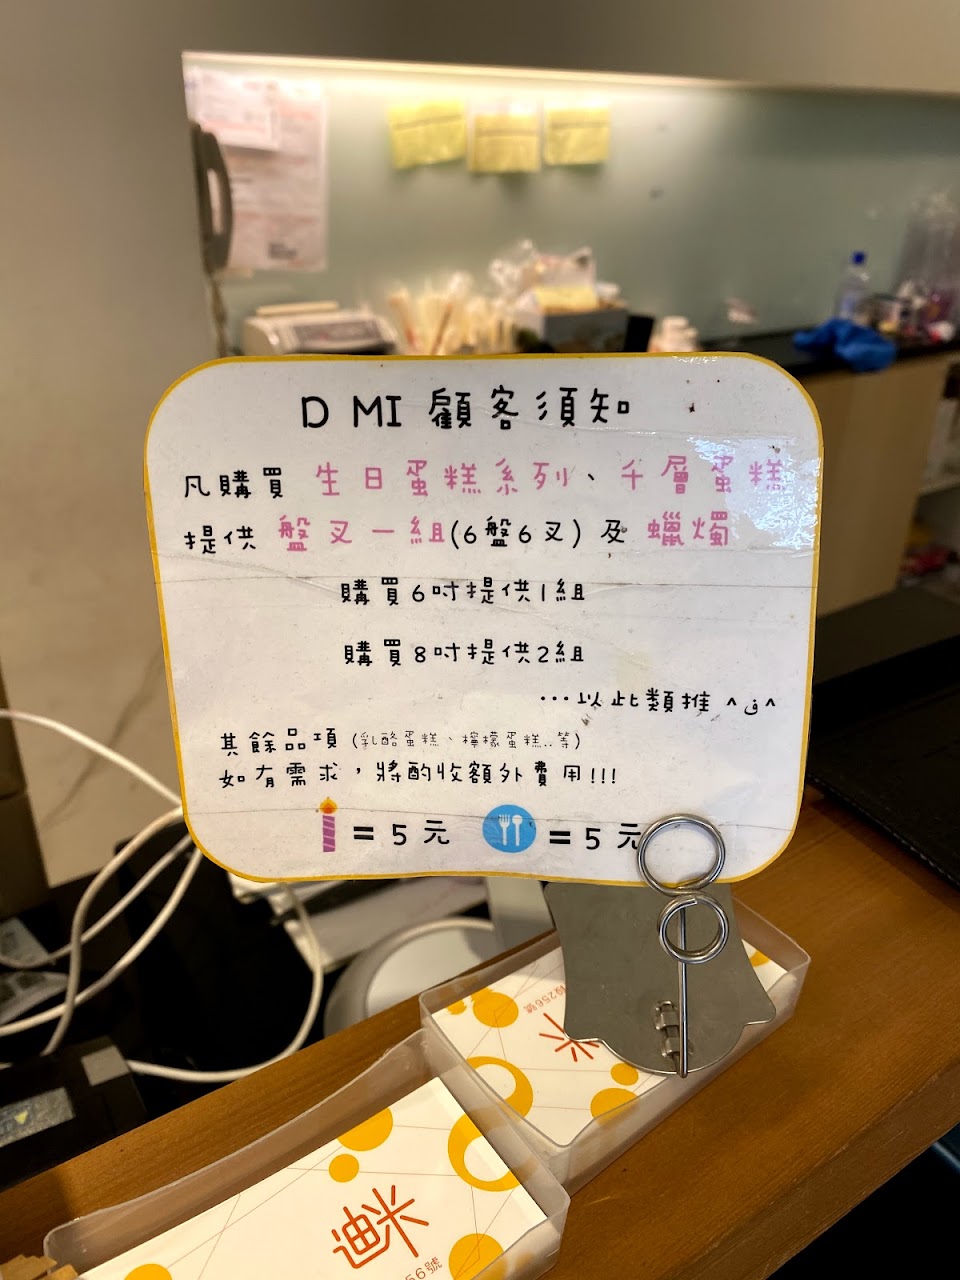 D MI 顧客須知
凡購買 生日蛋糕系列、千層蛋糕
提供 盤叉一組(6盤6叉) 及 蠟燭
購買6吋提供1組
購買8吋提供2組
...以此類推 ^ڡ^
其餘品項 (乳酪蛋糕、檸檬蛋糕..等)
如有需求，將酌收額外費用!!!
= 5 元 = 5 元
段256號
米
迪米
56號